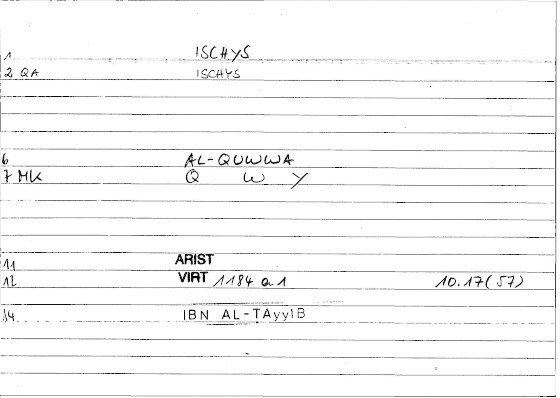 1 ISCHYS
2 QA ISCHYS
6 AL-QUWWA
7 MK Q W Y
11 ARIST
12 VIRT 1184 a 1 10.17(57)
14 IBN AL-TAyyIB